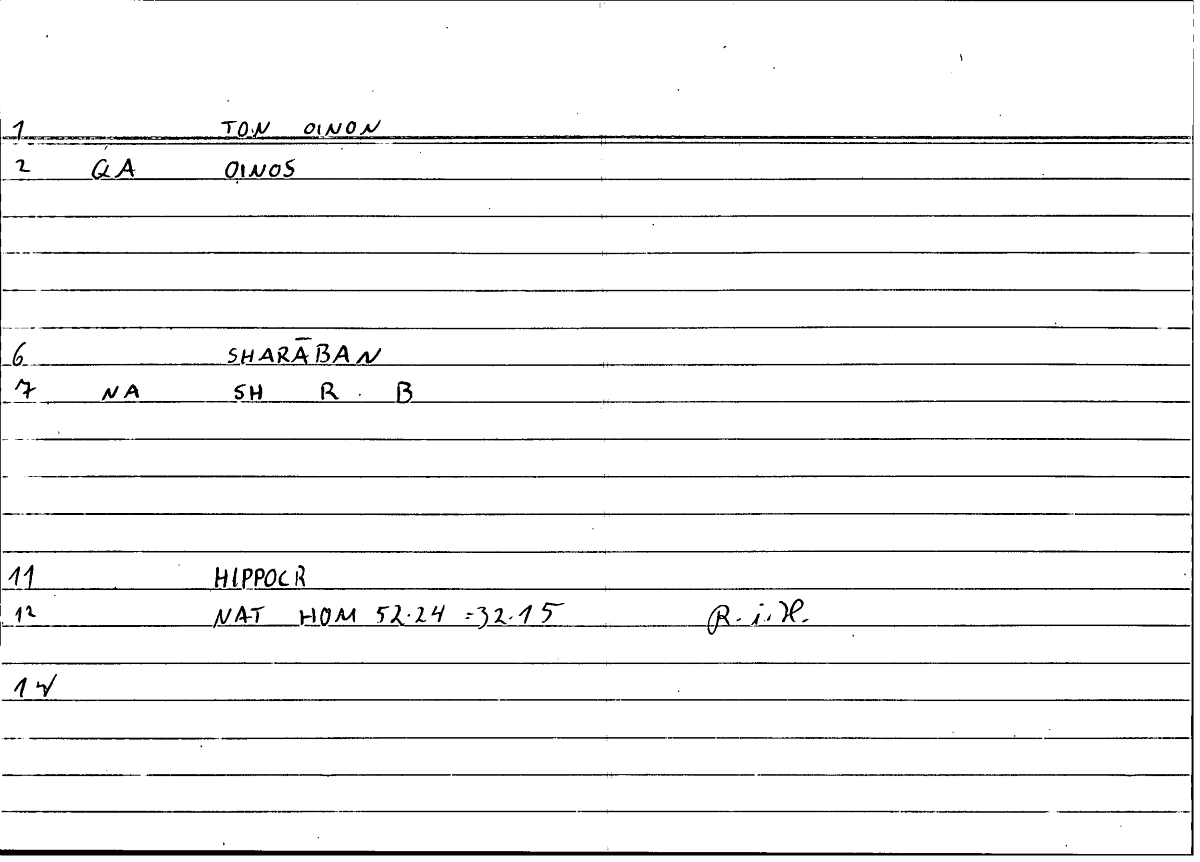 1 TON OINON
2 QA OINOS
6 SHARĀBAN
7 NA SH R B
11 HIPPOCR
12 NAT HOM 52.24 =32.15 R.i.H.
14